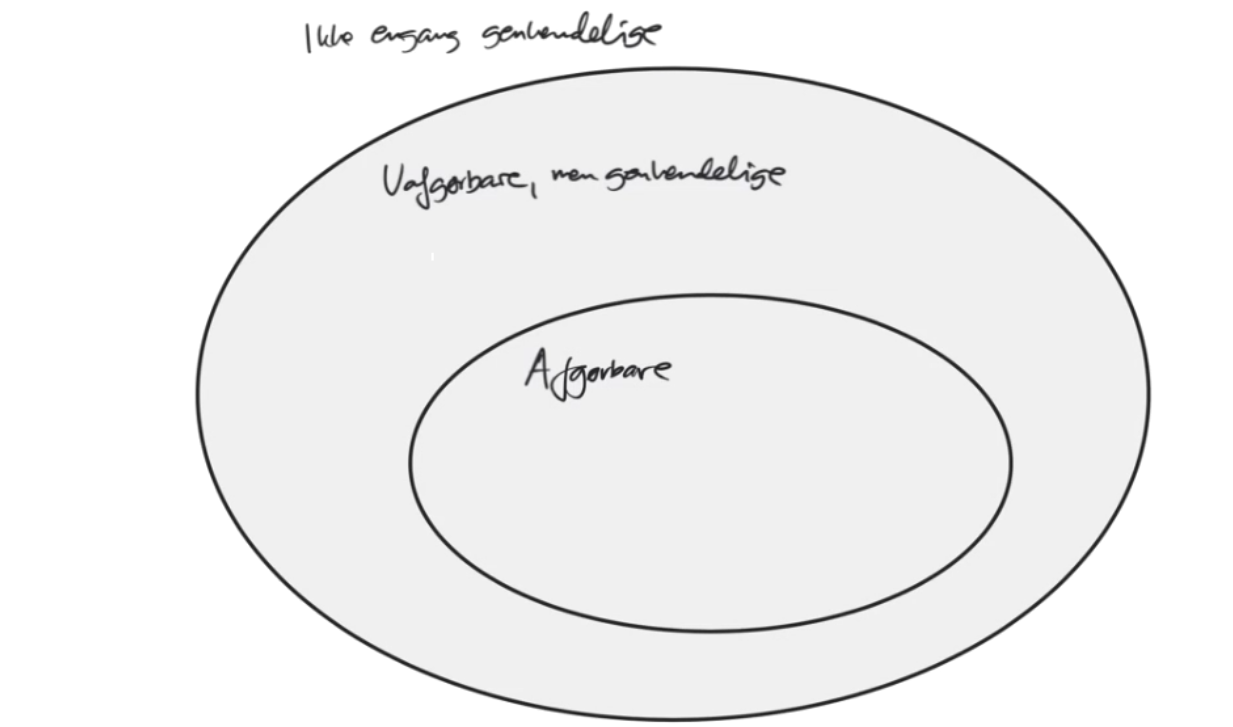 Ikke engang genkendelige
Uafgørbare, men genkendelige
Afgørbare